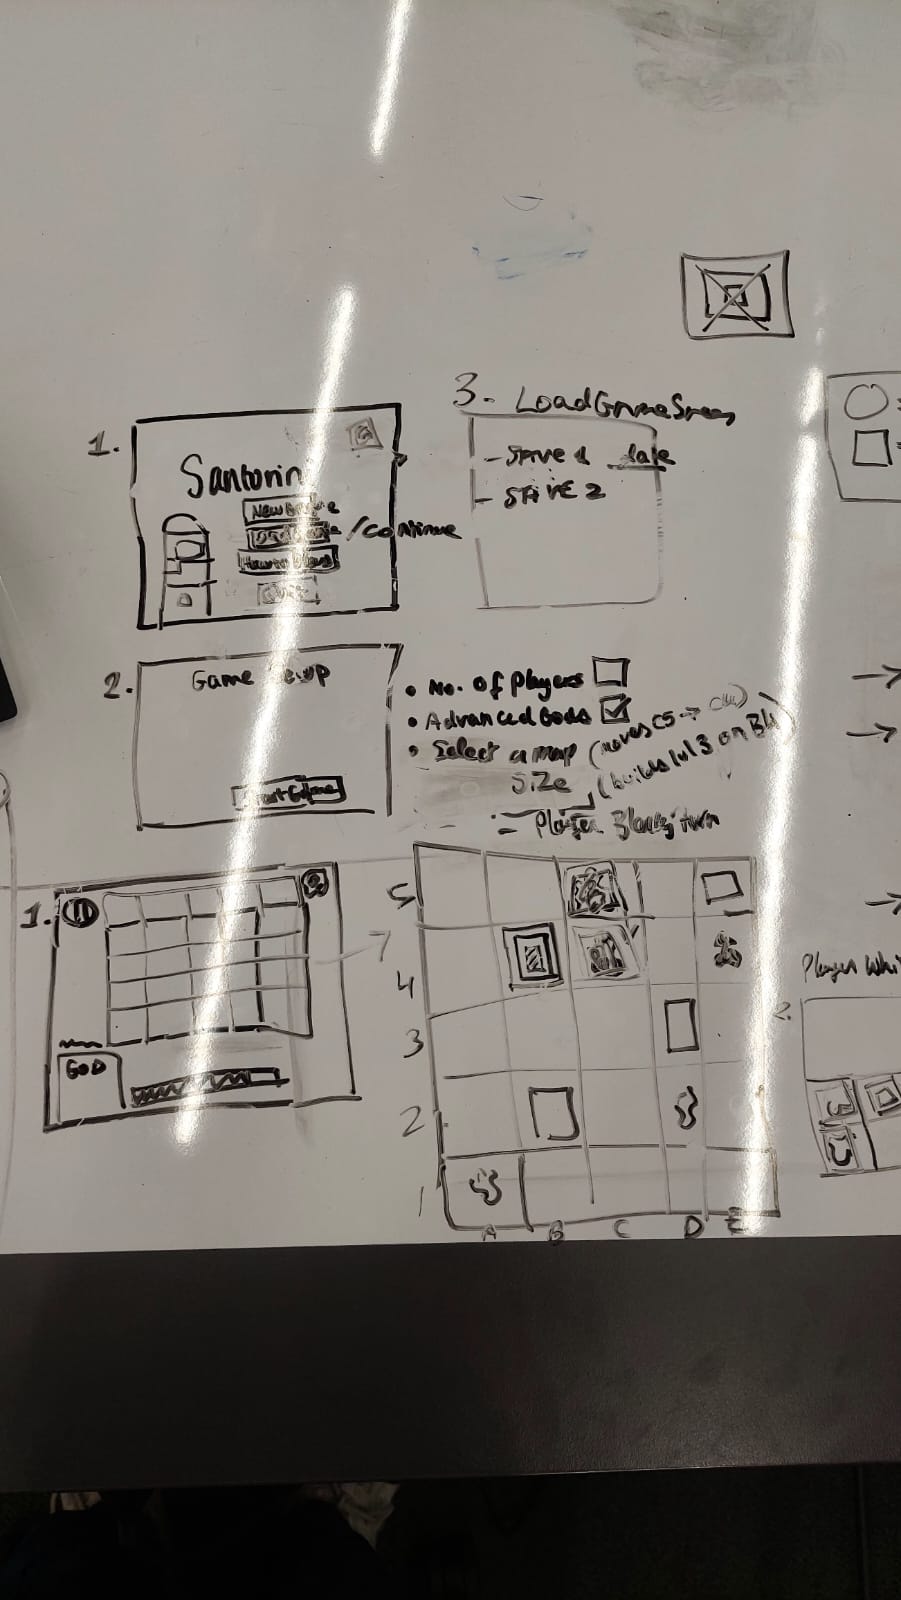 1.
Santorini
New Game
/Continue
How to Play
Quit
3. LoadGameScreen
- SAVE 1 date
- SAVE 2
2.
Game Setup
Start Game
• No. of Players
• Advanced Gods
• Select a map
size
(moves C5 → C4)
(builds lvl 3 on B4)
= Player Black's turn
1.
GOD
5
4
3
2
1
A B C D E
2.